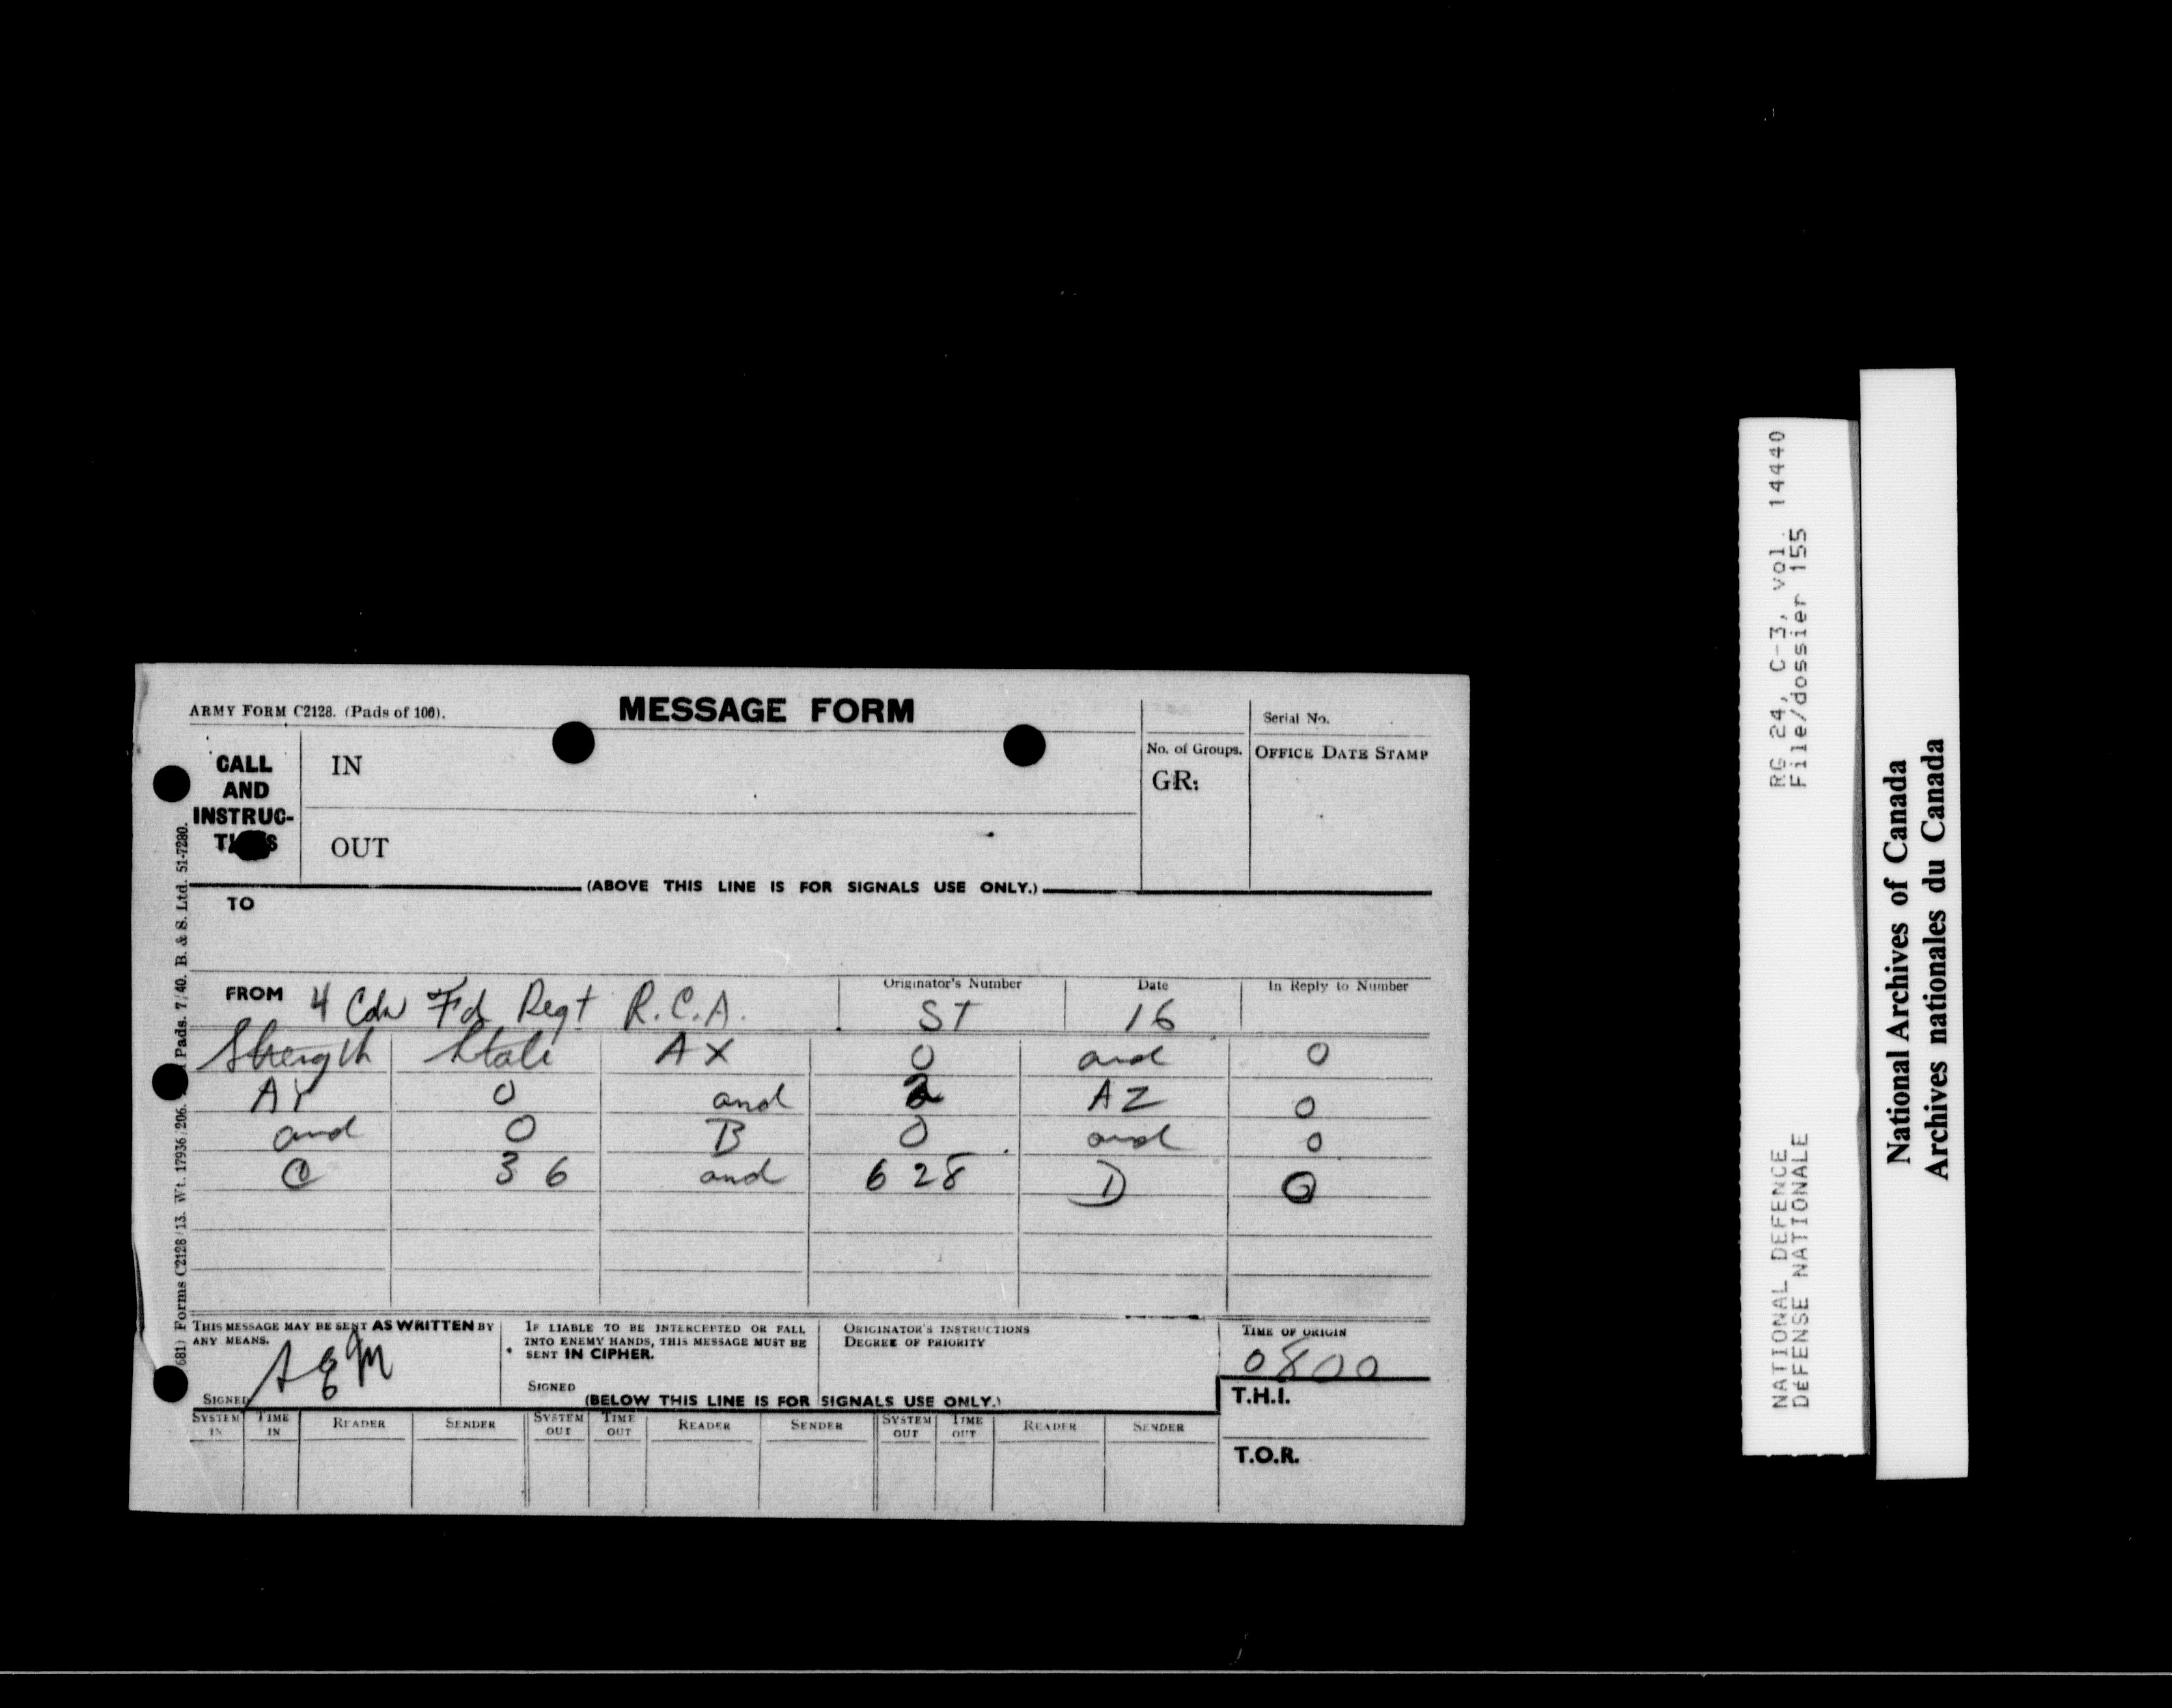 ARMY FORM C2128. (Pads of 100).
MESSAGE FORM
Serial No.
CALL AND INSTRUC-
IN
No. of Groups.
GR:
OFFICE DATE STAMP
OUT
(ABOVE THIS LINE IS FOR SIGNALS USE ONLY.)
TO
FROM 4 Cdn Fd Regt R.C.A.
Originator's Number ST
Date 16
In Reply to Number
Strength State AX 0 and 0
AY 0 and 2 AZ 0
and 0 B 0 and 0
C 36 and 628 D 0
THIS MESSAGE MAY BE SENT AS WRITTEN BY
ANY MEANS.
SIGNED AEM
IF LIABLE TO BE INTERCEPTED OR FALL
INTO ENEMY HANDS, THIS MESSAGE MUST BE
SENT IN CIPHER.
SIGNED
ORIGINATOR'S INSTRUCTIONS
DEGREE OF PRIORITY
TIME OF ORIGIN
0800
(BELOW THIS LINE IS FOR SIGNALS USE ONLY.)
T.H.I.
SYSTEM IN TIME IN READER SENDER SYSTEM OUT TIME OUT READER SENDER SYSTEM OUT TIME OUT READER SENDER
T.O.R.
681) Forms C2128/13. Wt. 17936/206. Pads. 7/40. B. & S. Ltd. 51-7280.
RG 24, C-3, vol. 14440
File/dossier 155
NATIONAL DEFENCE
DÉFENSE NATIONALE
National Archives of Canada
Archives nationales du Canada